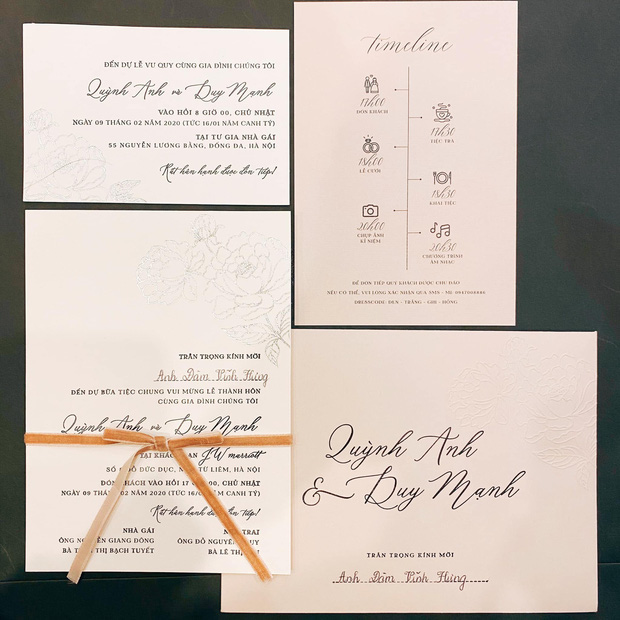 ĐẾN DỰ LỄ VU QUY CÙNG GIA ĐÌNH CHÚNG TÔI
Quỳnh Anh và Duy Mạnh
VÀO HỒI 8 GIỜ 00, CHỦ NHẬT
NGÀY 09 THÁNG 02 NĂM 2020 (TỨC 16/01 NĂM CANH TÝ)
TẠI TƯ GIA NHÀ GÁI
55 NGUYỄN LƯƠNG BẰNG, ĐỐNG ĐA, HÀ NỘI
Rất hân hạnh được đón tiếp!
timeline
17h00
ĐÓN KHÁCH
17h30
TIỆC TRÀ
18h00
LỄ CƯỚI
18h30
KHAI TIỆC
20h00
CHỤP ẢNH
KỈ NIỆM
20h30
CHƯƠNG TRÌNH
ÂM NHẠC
ĐỂ ĐÓN TIẾP QUÝ KHÁCH ĐƯỢC CHU ĐÁO
NẾU CÓ THỂ, VUI LÒNG XÁC NHẬN QUA SMS -
DRESSCODE: ĐEN - TRẮNG - GHI - HỒNG
TRÂN TRỌNG KÍNH MỜI
Anh Đàm Vĩnh Hưng
ĐẾN DỰ BỮA TIỆC CHUNG VUI MỪNG LỄ THÀNH HÔN
CÙNG GIA ĐÌNH CHÚNG TÔI
Quỳnh Anh và Duy Mạnh
TẠI KHÁCH SẠN JW marriott
SỐ ĐỖ ĐỨC DỤC, TỪ LIÊM, HÀ NỘI
ĐÓN KHÁCH VÀO HỒI 17 CHỦ NHẬT
NGÀY 09 THÁNG 02 NĂM 2020 (TỨC 16/01 NĂM CANH TÝ)
Rất hân hạnh được đón tiếp!
NHÀ GÁI
NHÀ TRAI
ÔNG NGUYỄN GIANG ĐÔNG
ÔNG ĐỖ NGUYÊN
BÀ THỊ BẠCH TUYẾT
BÀ LÊ THỊ
Quỳnh Anh
& Duy Mạnh
TRÂN TRỌNG KÍNH MỜI
Anh Đàm Vĩnh Hưng